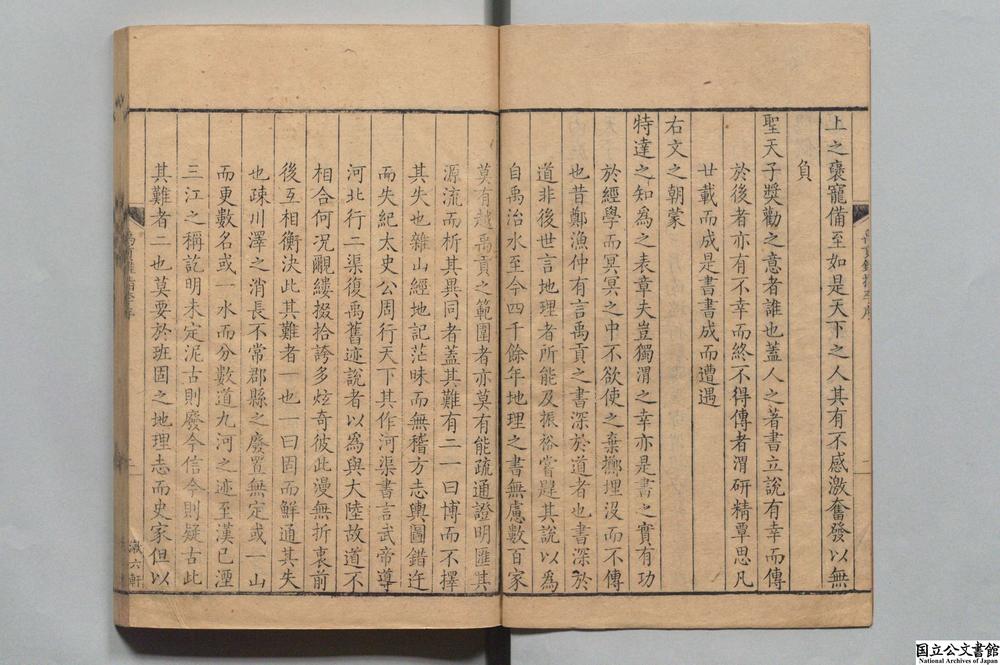 上之襃寵備至如是天下之人其有不感激奮發以無
負
聖天子獎勸之意者誰也蓋人之著書立說有幸而傳
於後者亦有不幸而終不得傳者渭研精覃思凡
廿載而成是書書成而遭遇
右文之朝蒙
特達之知為之表章夫豈獨渭之幸亦是書之實有功
於經學而冥冥之中不欲使之棄擲埋沒而不傳
也昔鄭漁仲有言禹貢之書深於道者也書深於
道非後世言地理者所能及振裕嘗韙其說以為
自禹治水至今四千餘年地理之書無慮數百家
莫有越禹貢之範圍者亦莫有能疏通證明匯其
源流而析其異同者蓋其難有二一曰博而不擇
其失也雜山經地記茫昧而無稽方志輿圖錯迕
而失紀太史公周行天下其作河渠書言武帝導
河北行二渠復禹舊迹說者以為與大陸故道不
相合何況覼縷掇拾誇多炫奇彼此漫無折衷前
後互相衡決此其難者一也一曰固而鮮通其失
也疎川澤之消長不常郡縣之廢置無定或一山
而更數名或一水而分數道九河之迹至漢已湮
三江之稱訖明未定泥古則廢今信今則疑古此
其難者二也莫要於班固之地理志而史家但以
禹貢錐指李序
二
漱六軒
国立公文書館
National Archives of Japan